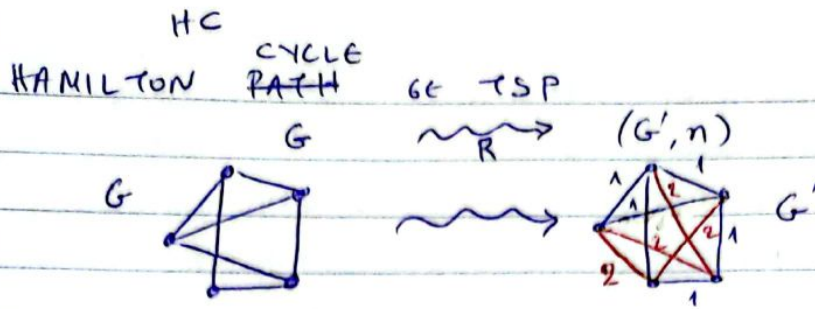 HC
CYCLE
HAMILTON PATH GE TSP
G R (G', n)
G G'
1 1 1 2 2 2 1 2 1